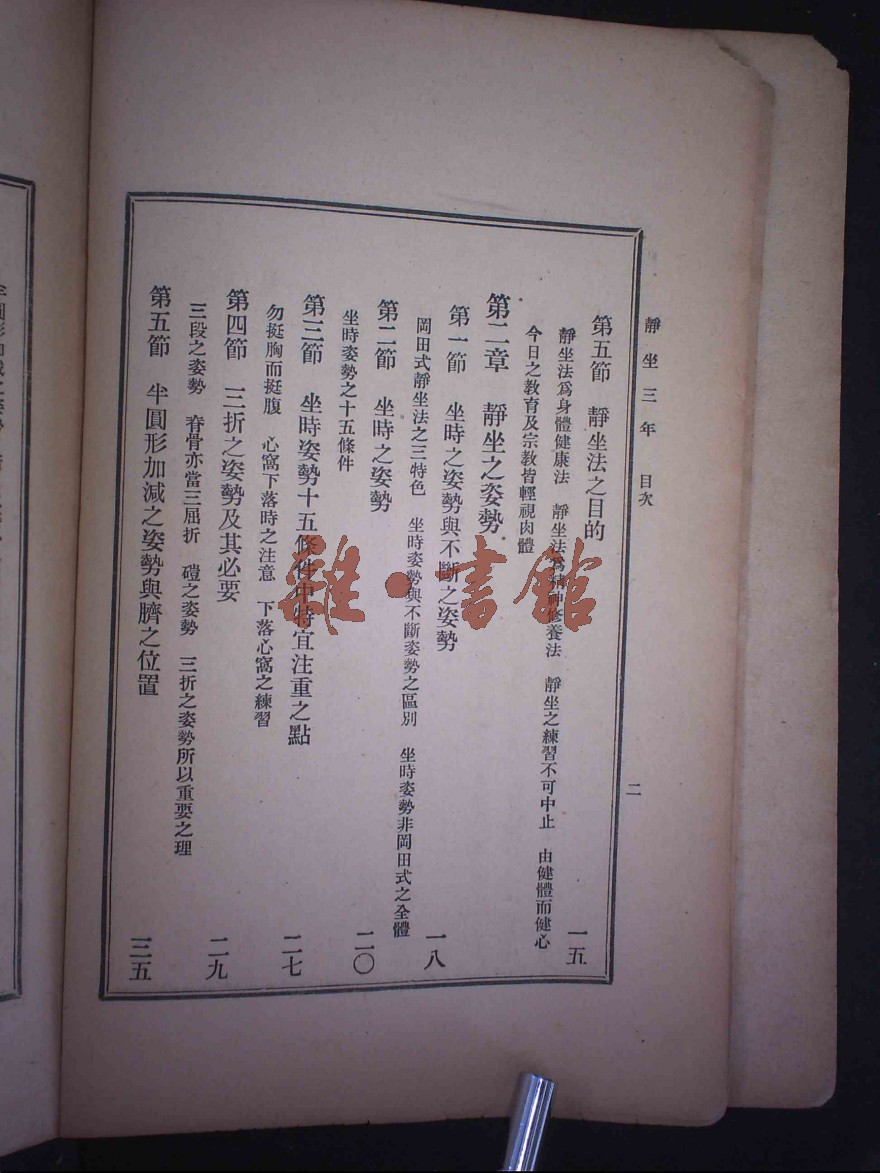 靜坐三年 目次
二
第五節 靜坐法之目的 一五
靜坐法爲身體健康法 靜坐法爲精神修養法 靜坐之練習不可中止 由健體而健心
今日之教育及宗教皆輕視肉體
第二章 靜坐之姿勢
第一節 坐時之姿勢與不斷之姿勢 一八
岡田式靜坐法之三特色 坐時姿勢與不斷姿勢之區別 坐時姿勢非岡田式之全體
第二節 坐時之姿勢 二〇
坐時姿勢之十五條件
第三節 坐時姿勢十五條件中特宜注重之點 二七
勿挺胸而挺腹 心窩下落時之注意 下落心窩之練習
第四節 三折之姿勢及其必要 二九
三段之姿勢 脊骨亦當三屈折 磕之姿勢 三折之姿勢所以重要之理
第五節 半圓形加減之姿勢與臍之位置 三五
雜·書館